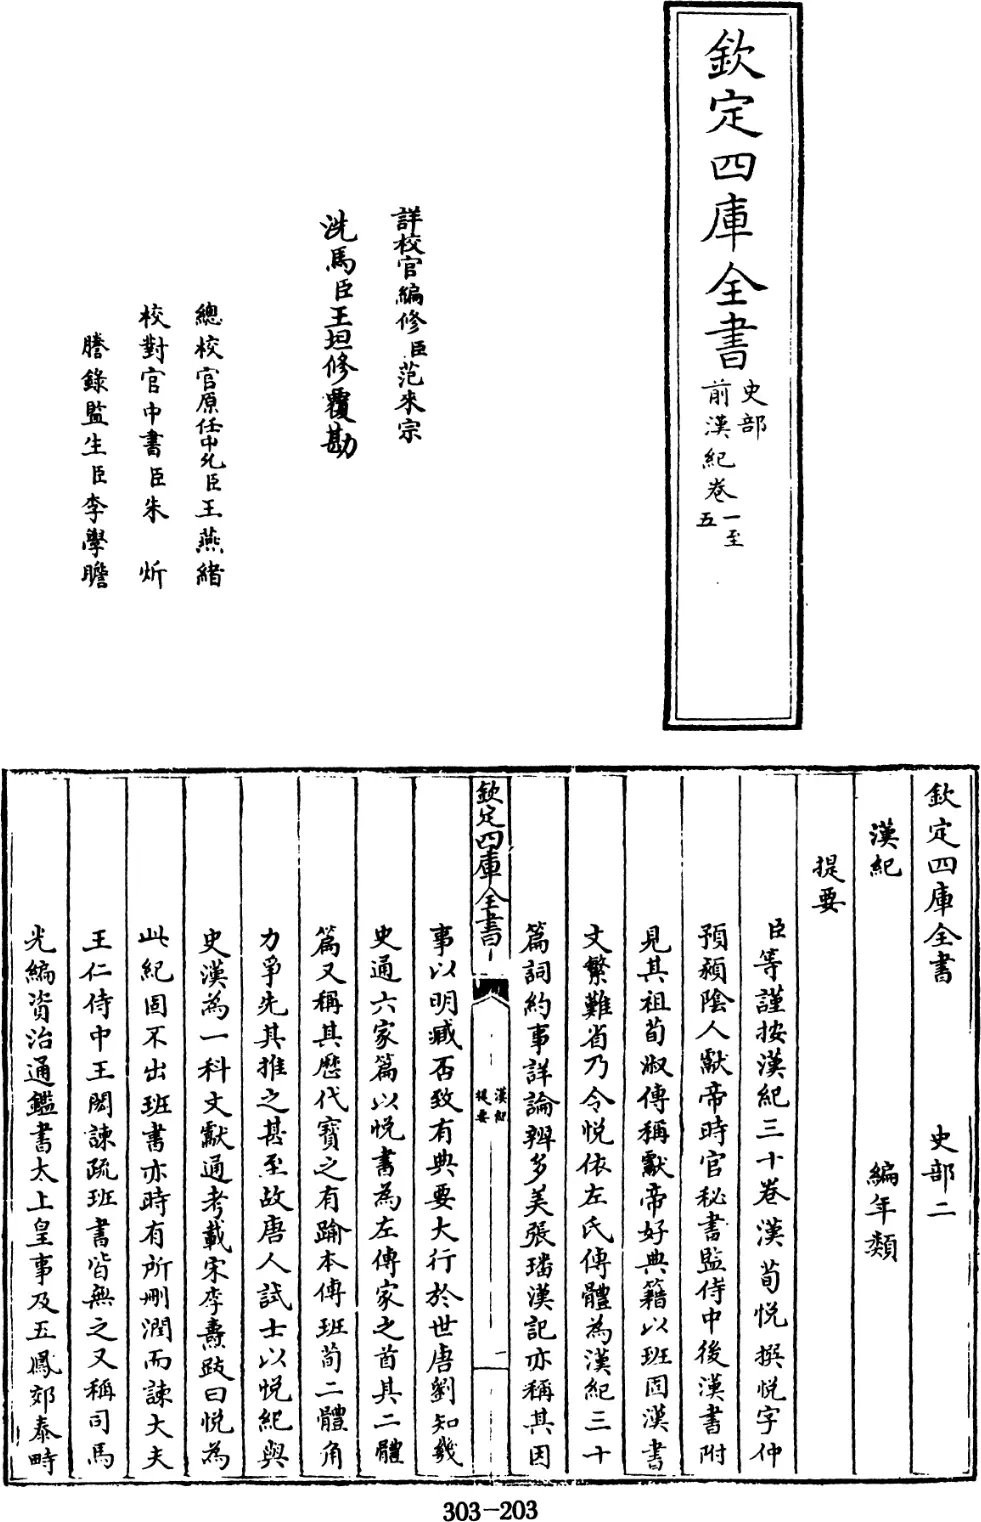 欽定四庫全書
史部
前漢紀卷一至
五
詳校官編修臣范來宗
洗馬臣王坦修覆勘
總校官原任中允臣王燕緒
校對官中書臣朱炘
謄錄監生臣李學瞻
欽定四庫全書 史部二
漢紀 編年類
提要
臣等謹按漢紀三十卷漢荀悅撰悅字仲
預潁陰人獻帝時官秘書監侍中後漢書附
見其祖荀淑傳稱獻帝好典籍以班固漢書
文繁難省乃令悅依左氏傳體為漢紀三十
篇詞約事詳論辨多美張璠漢記亦稱其因
欽定四庫全書
漢紀
提要
一
事以明臧否致有典要大行於世唐劉知幾
史通六家篇以悅書為左傳家之首其二體
篇又稱其歷代寶之有踰本傳班荀二體角
力爭先其推之甚至故唐人試士以悅紀與
史漢為一科文獻通考載宋李燾跋曰悅為
此紀固不出班書亦時有所刪潤而諫大夫
王仁侍中王閎諫疏班書皆無之又稱司馬
光編資治通鑑書太上皇事及五鳳郊泰畤
303-203